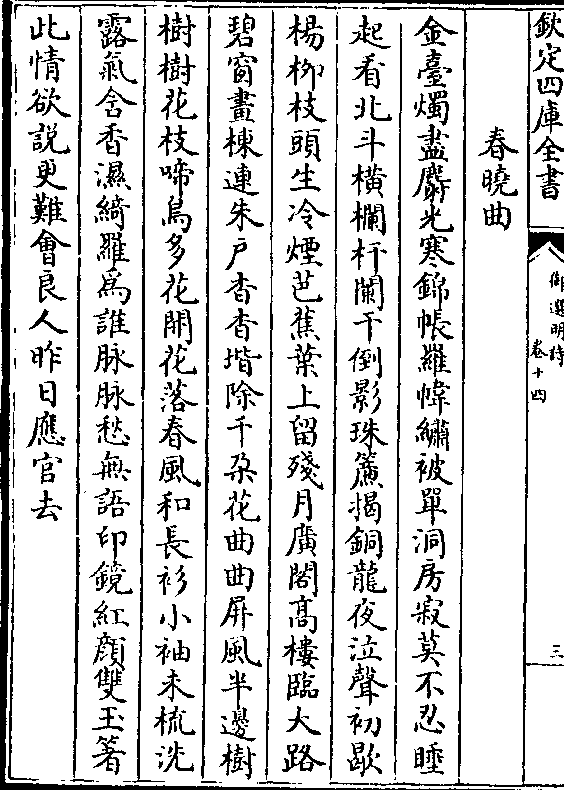 欽定四庫全書
御選明詩
卷十四
三
春曉曲
金臺燭盡麝光寒錦帳羅幃繡被單洞房寂莫不忍睡
起看北斗橫欄杆闌干倒影珠簾揭銅龍夜泣聲初歇
楊柳枝頭生冷煙芭蕉葉上留殘月廣閣高樓臨大路
碧窗畫棟連朱戶杳杳堦除千朶花曲曲屏風半邊樹
樹樹花枝啼鳥多花開花落春風和長衫小袖未梳洗
露氣含香濕綺羅為誰脉脉愁無語印鏡紅顔雙玉箸
此情欲說更難會良人昨日應官去